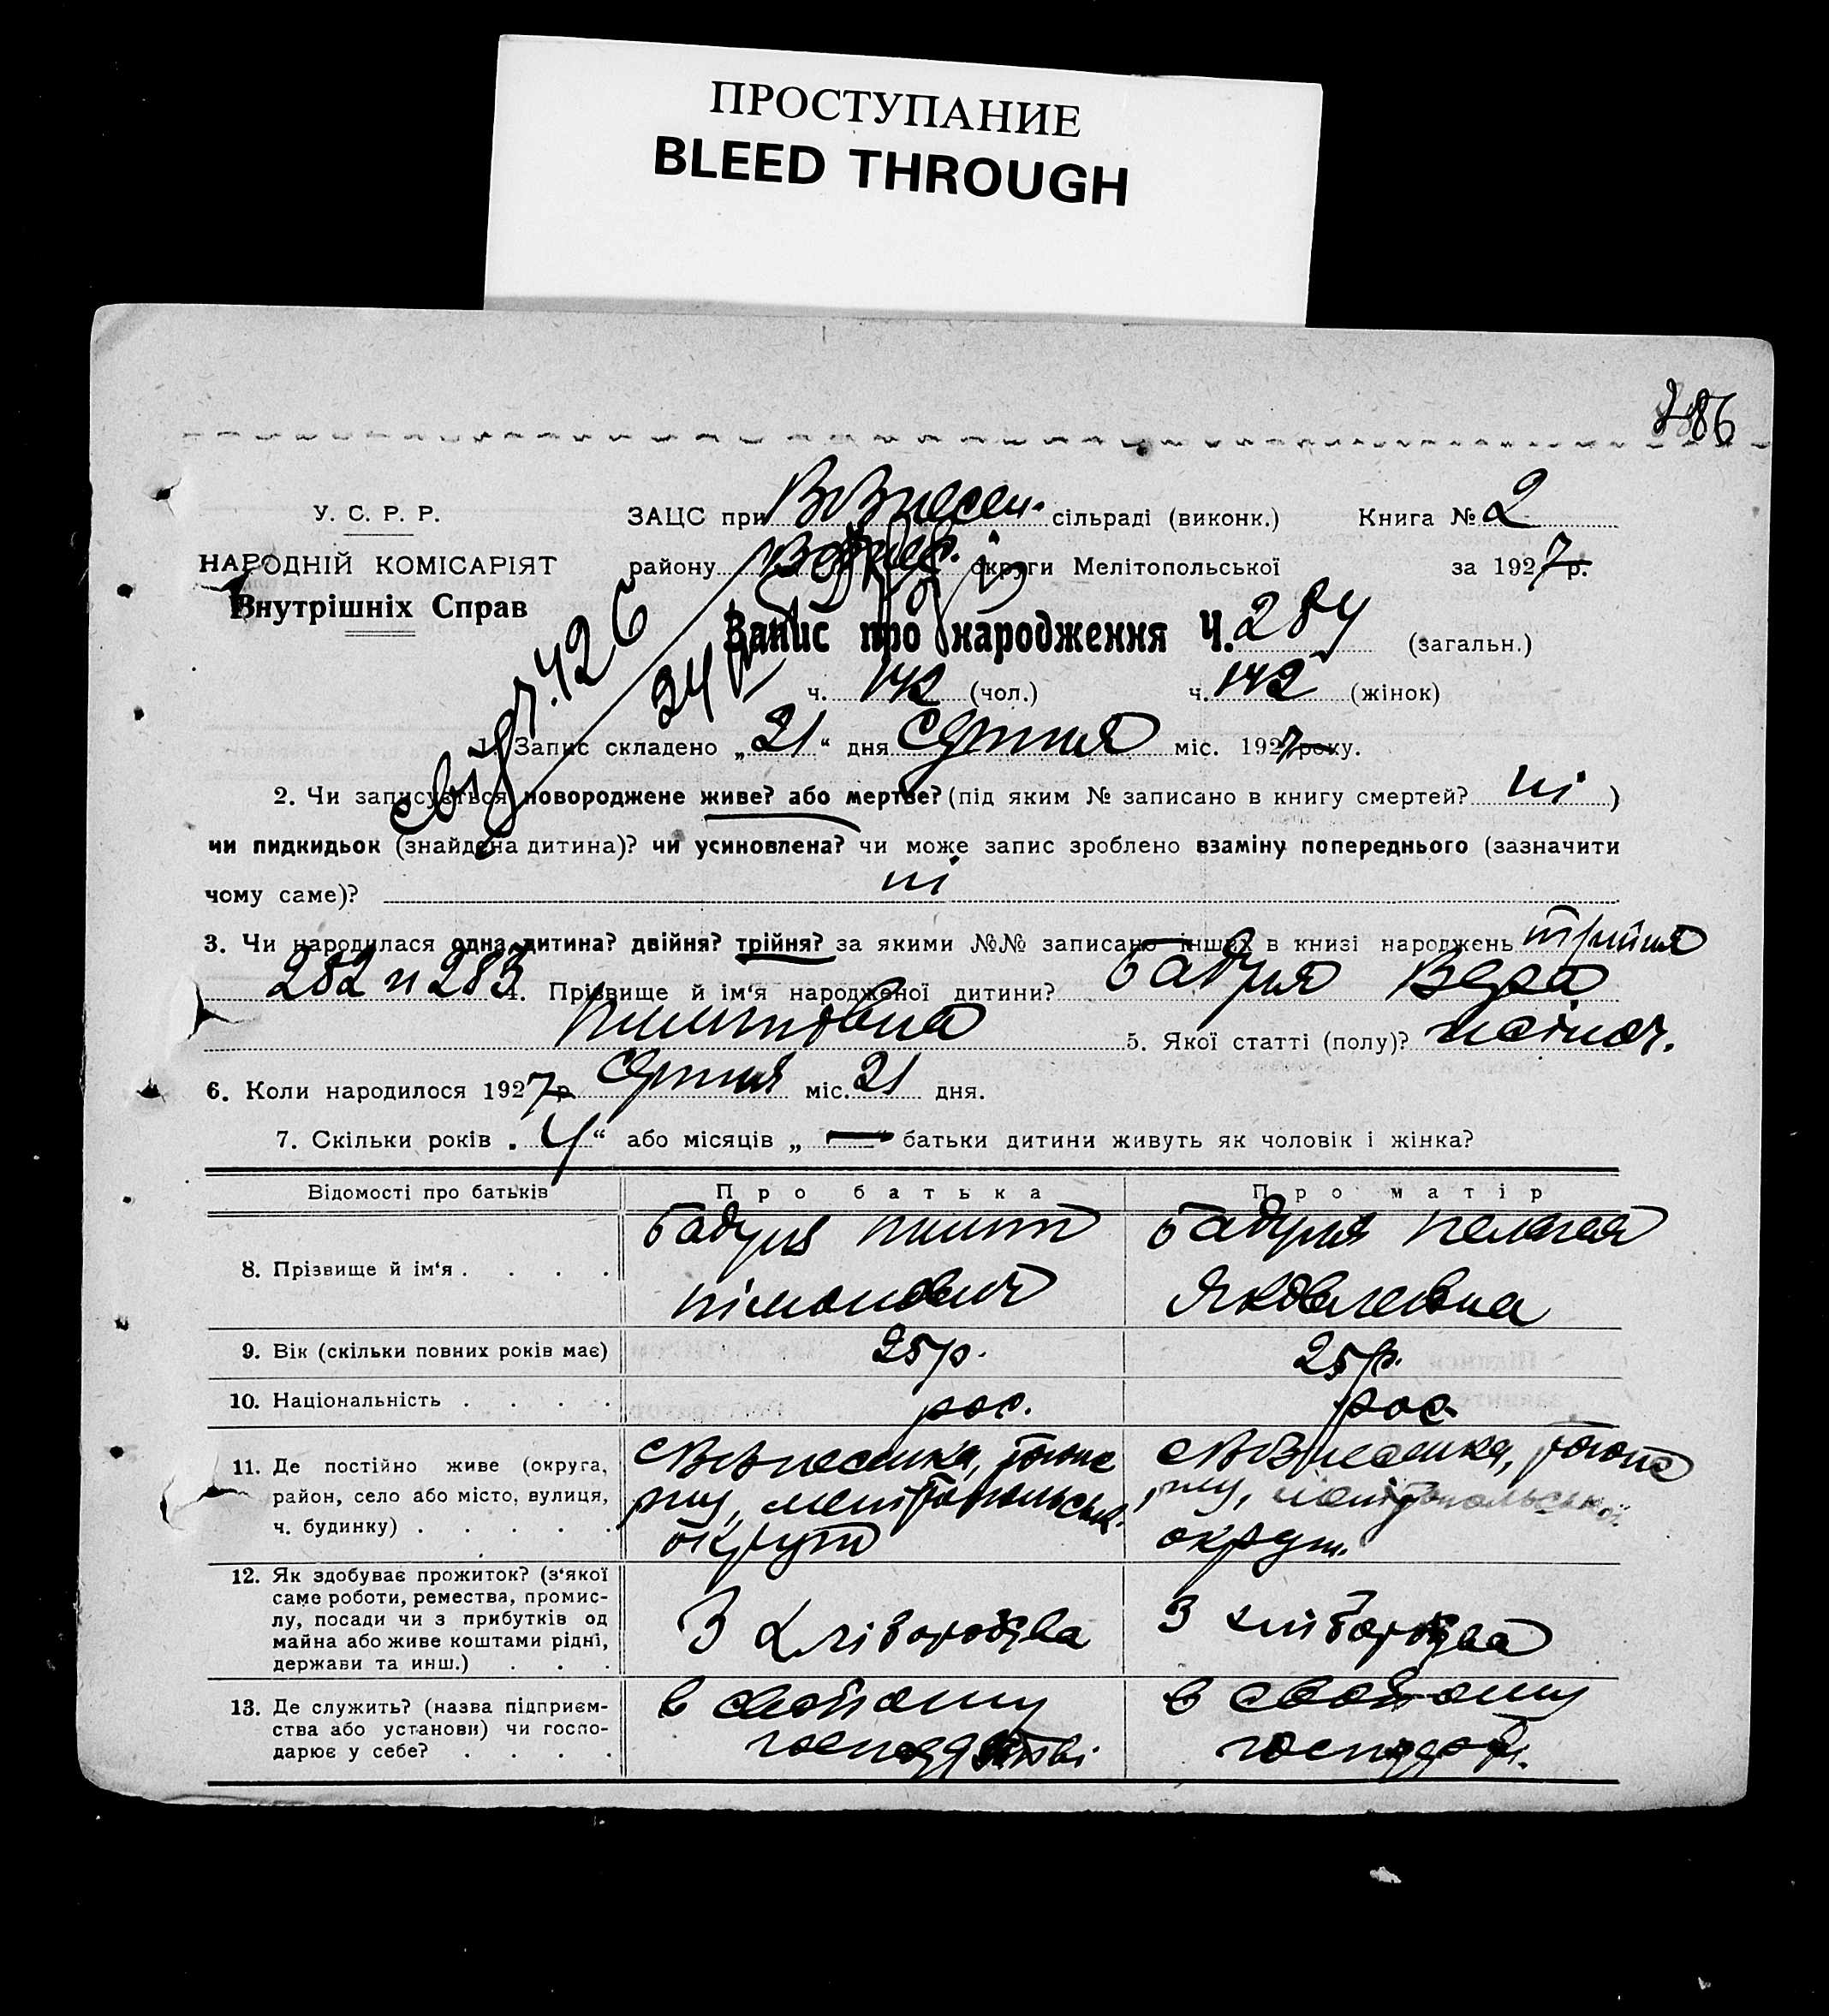 ПРОСТУПАНИЕ
BLEED THROUGH
286
У. С. Р. Р.
НАРОДНІЙ КОМІСАРІЯТ
Внутрішніх Справ
ЗАЦС при Вознесен. сільраді (виконк.) Книга № 2
району округи Мелітопольської за 1927 р.
Запис про народження Ч. 284 (загальн.)
ч. 142 (чол.) ч. 142 (жінок)
1. Запис складено „21“ дня серпня міс. 1927 року.
2. Чи записується новороджене живе? або мертве? (під яким № записано в книгу смертей? ні )
чи пидкидьок (знайдена дитина)? чи усиновлена? чи може запис зроблено взаміну попереднього (зазначити
чому саме)? ні
3. Чи народилася одна дитина? двійня? трійня? за якими №№ записано інших в книзі народжень трийня
282 и 283 4. Прізвище й ім'я народженої дитини? Бадуля Вера
5. Якої статті (полу)? жіноч.
6. Коли народилося 1927 р. серпня міс. 21 дня.
7. Скільки років „4“ або місяців „—“ батьки дитини живуть як чоловік і жінка?
Відомості про батьків Про батька Про матір
8. Прізвище й ім'я . . . . Яковлевна
9. Вік (скільки повних років має) 25 р. 25 р.
10. Національність . . . . рос. рос.
11. Де постійно живе (округа,
район, село або місто, вулиця,
ч. будинку) . . . . .
округи округи
12. Як здобуває прожиток? (з'якої
саме роботи, ремества, промис-
лу, посади чи з прибутків од
майна або живе коштами рідні,
держави та инш.) . . .
З хліборобства З хліборобства
13. Де служить? (назва підприєм-
ства або установи) чи госпо-
дарює у себе? . . . .
в свойому в свойому
господарстві господар.